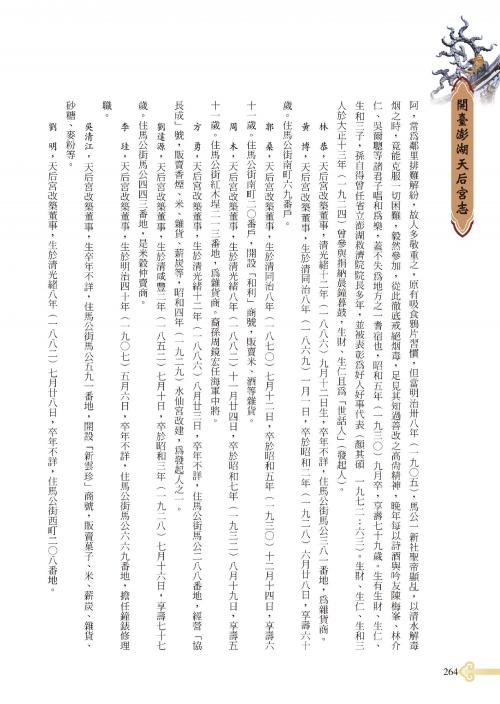 開臺澎湖天后宮志
阿，常為鄰里排難解紛，故人多敬重之，原有吸食鴉片習慣，但當明治卅八年（一九〇五）馬公一新社聖帝顯乩，以清水解毒
烟之時，竟能克服一切困難，毅然參加，從此徹底戒絕烟毒，足見其知過善改之高尚精神，晚年每以詩酒與吟友陳梅峯、林介
仁、吳爾聰等諸君子唱和為樂，蓋不失為地方之一耆宿也，昭和五年（一九三〇）九月卒，享壽七十九歲。生有生財、生仁、
生和三子，孫自得曾任省立澎湖救濟院院長多年，並被表彰為好人好事代表（顏其碩 一九七二：六三）。生財、生仁、生和三
人於大正十三年（一九二四）曾參與捐納晨鐘暮鼓，生財、生仁且為「世話人」（發起人）。
林　恭，天后宮改築董事，清光緒十二年（一八八六）九月十二日生，卒年不詳，住馬公街馬公三八一番地，為雜貨商。
黃　博，天后宮改築董事，生於清同治八年（一八六九）一月一日，卒於昭和三年（一九二八）六月廿八日，享壽六十
歲。住馬公街南町六九番戶。
郭　桑，天后宮改築董事，生於清同治八年（一八七〇）七月十二日，卒於昭和五年（一九三〇）十二月十四日，享壽六
十一歲。住馬公街南町二〇番戶，開設「和利」商號，販賣米、酒等雜貨。
周　木，天后宮改築董事，生於清光緒八年（一八八二）十一月廿四日，卒於昭和七年（一九三二）八月十九日，享壽五
十一歲。住馬公街紅木埕二一三番地，為雜貨商。裔孫周鏡宏任海軍中將。
方　勇，天后宮改築董事，生於清光緒十二年（一八八六）八月廿三日，卒年不詳，住馬公街馬公二八八番地，經營「協
長成」號，販賣香煙、米、雜貨、薪炭等，昭和四年（一九二九）水仙宮改建，為發起人之一。
劉遠源，天后宮改築董事，生於清咸豐二年（一八五二）七月十日，卒於昭和三年（一九二八）七月十六日，享壽七十七
歲。住馬公街馬公四四三番地，是米穀仲賣商。
李　珪，天后宮改築董事，生於明治四十年（一九〇七）五月六日，卒年不詳，住馬公街馬公六六九番地，擔任鐘錶修理
職。
吳清江，天后宮改築董事，生卒年不詳，住馬公街馬公五九一番地，開設「新雲珍」商號，販賣菓子、米、薪炭、雜貨、
砂糖、麥粉等。
劉　明，天后宮改築董事，生於清光緒八年（一八八二）七月廿八日，卒年不詳，住馬公街西町二〇八番地。
264